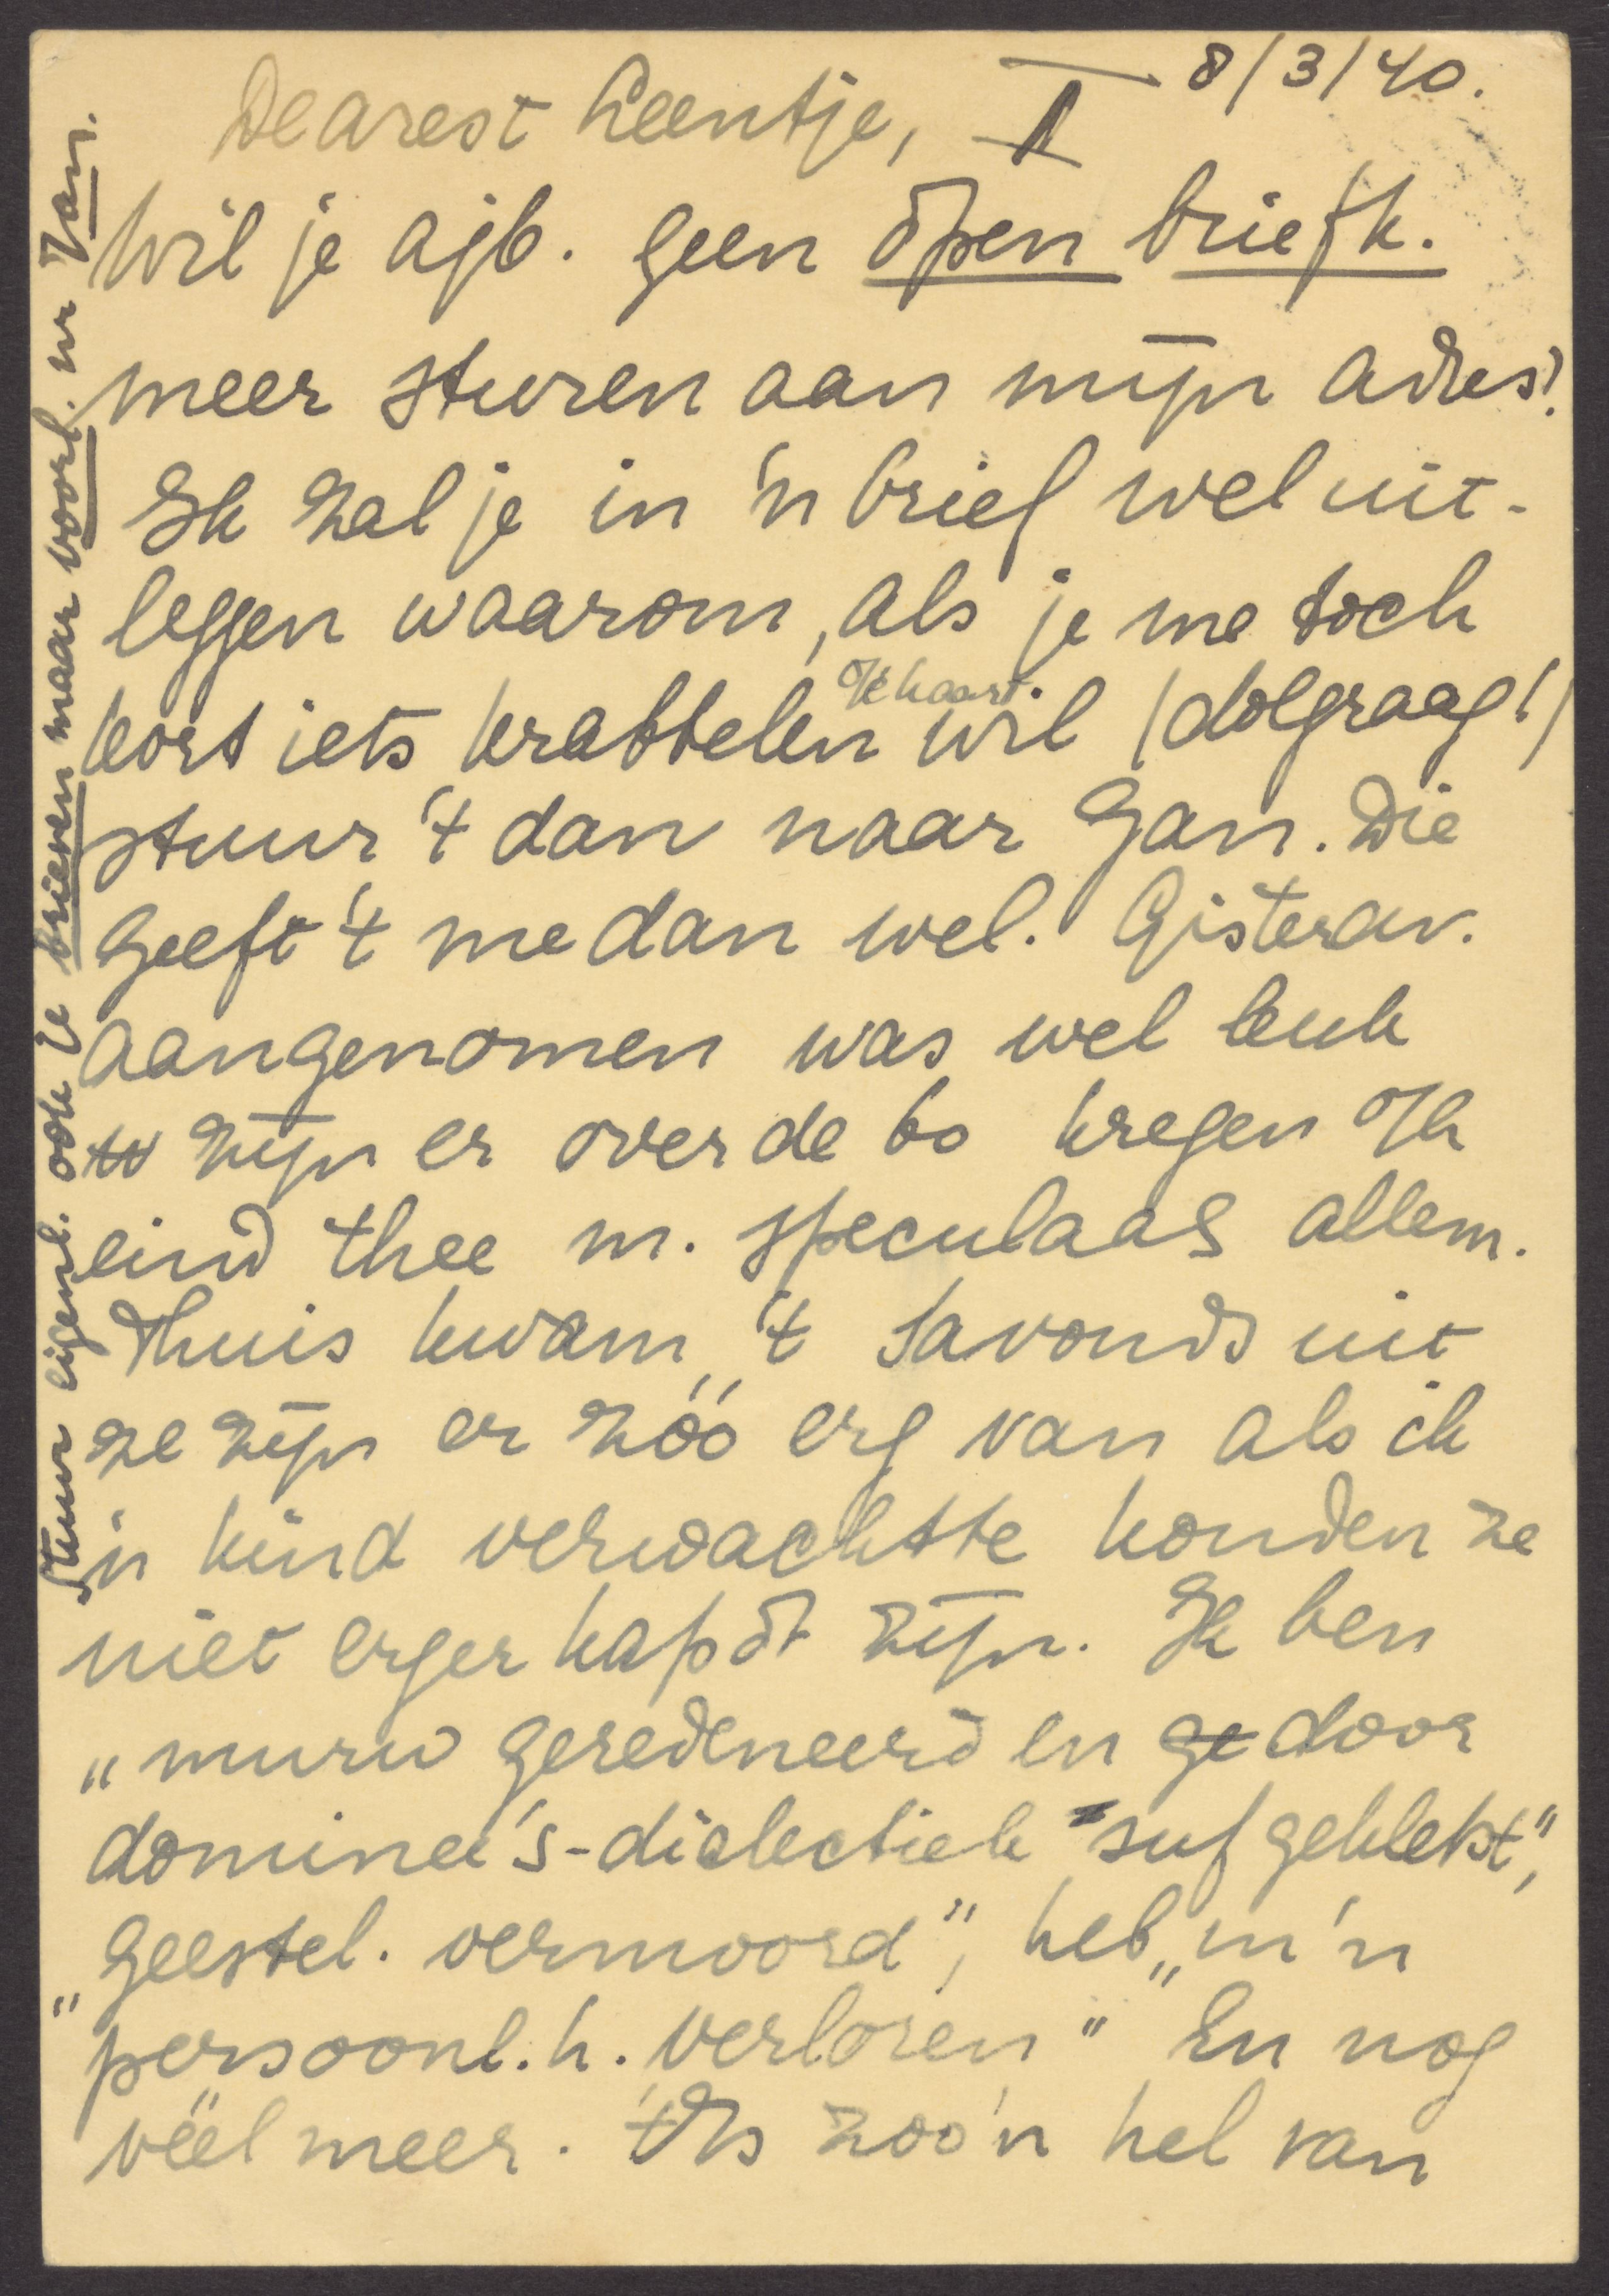 8/3/40.
Dearest Leentje, I
Wil je ajb. geen open briefk.
meer sturen aan mijn adres!
Ik zal je in 'n brief wel uit-
leggen waarom, als je me toch
kort iets krabbelen op 'e kaart. wil (dolgraag!)
stuur 't dan naar Jan. Die
geeft 't me dan wel. Gisterav.
aangenomen was wel leuk
zijn er over de 60 kregen op h
eind thee m. speculaas allem.
Thuis kwam 't savonds uit
ze zijn er zóó erg van als ik
'n kind verwachtte konden ze
niet erger kapot zijn. Ik ben
„murw geredeneerd en ge door
dominee's-dialectiek suf geklets",
„geestel. vermoord", heb „m'n
persoonl.h. verloren" En nog
véél meer. 't Is zoo'n hel van
Stuur eigenl. ook je brieven maar voorl. nr Jan.